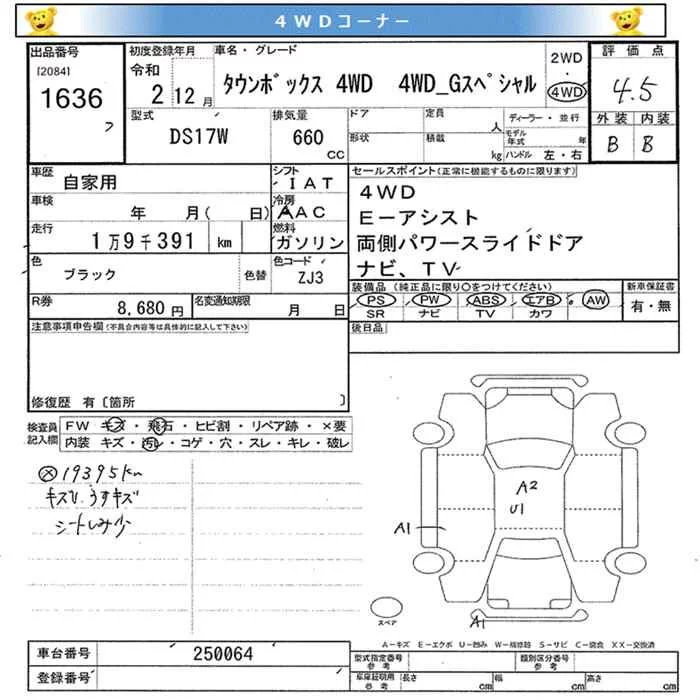 4WDコーナー
出品番号
[2084]
1636
初度登録年月
令和
2 12 月
車名・グレード
タウンボックス 4WD 4WD_Gスペシャル
2WD
・
4WD
評価点
4.5
外装 内装
B B
型式
DS17W
排気量
660
CC
ドア
形状
定員
人
積載
kg
ディーラー・並行
モデル年式 年
ハンドル 左・右
車歴
自家用
シフト
IAT
車検
年 月( 日)
冷房
AAC
走行
1万9千391 km
燃料
ガソリン
色
ブラック
色替
色コード
ZJ3
R券
8,680 円
名変通知期限
月 日
セールスポイント(正常に機能するものに限ります)
4WD
E-アシスト
両側パワースライドドア
ナビ、TV
装備品 (純正品に限り○をつけてください)
新車保証書
PS PW ABS エアB AW
SR ナビ TV カワ
有・無
後日品
注意事項申告欄(不具合内容等は具体的に記入して下さい)
修復歴 有〔箇所 〕
検査員
記入欄
FW キズ・飛石・ヒビ割・リペア跡・×要
内装 キズ・汚レ・コゲ・穴・スレ・キレ・破レ
19395km
キズひ、うすキズ
シートしみ少
A2
U1
A1
A1
スペア
A-キズ E-エクボ U-凹み W-補修跡 S-サビ C-腐食 XX-交換済
車台番号
250064
登録番号
型式指定番号
参考
類別区分番号
参考
車庫証明用
参考
長さ cm 幅 cm 高さ cm